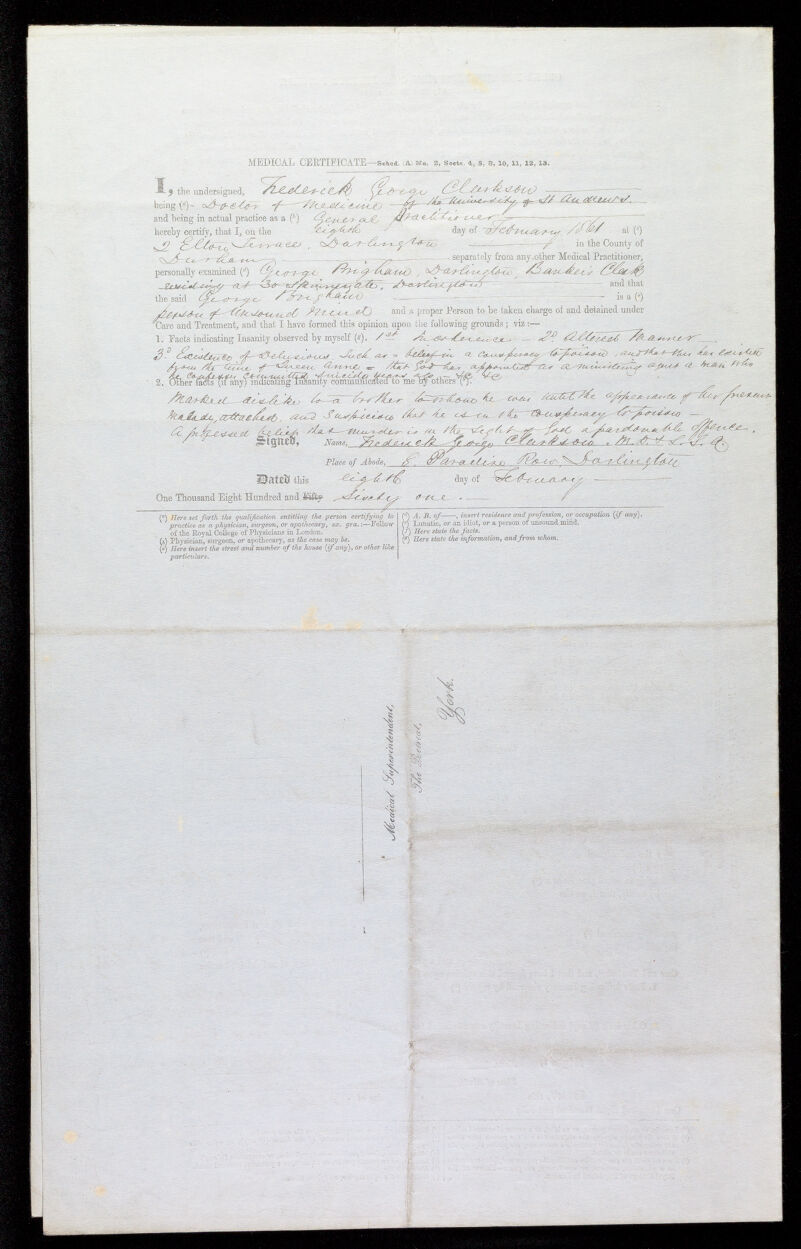 MEDICAL CERTIFICATE—Sched. (A.) No. 2, Sects. 4, 5, 8, 10, 11, 12, 13.
I, the undersigned, Frederick George Clarkson
being (a) Doctor of Medicine of the University of St Andrew's.
and being in actual practice as a (b) General Practitioner
hereby certify, that I, on the eighth day of February 1861 at (c)
2 Elton Terrace, Darlington in the County of
Durham separately from any other Medical Practitioner,
personally examined (d) George Brigham, Darlington, Bankers Clerk
residing at 30 Skinnergate, Darlington and that
the said George Brigham is a (e)
person of unsound mind and a proper Person to be taken charge of and detained under
Care and Treatment, and that I have formed this opinion upon the following grounds; viz:—
1. Facts indicating Insanity observed by myself (f). 1st Incoherence – 2d. Altered Manner
3d. Existence of Delusions, such as = belief in a conspiracy to poison, and that this has existed
from the time of Queen Anne = that God has appointed as a ministering agent a man who
he confesses committed suicide years ago – &c &c
2. Other facts (if any) indicating Insanity communicated to me by others (g).
Marked dislike to a brother to whom he was until the appearance of his present
malady, attached, and suspicion that he is in the conspiracy to poison –
A professed belief that murder is in the sight of God a pardonable offence.
Signed, Name, Frederick George Clarkson. M.D. & L.S.A.
Place of Abode, 8. Paradise Row, Darlington
Dated this eighth day of February
One Thousand Eight Hundred and Fifty Sixty one.
(a) Here set forth the qualification entitling the person certifying to
practice as a physician, surgeon, or apothecary, ex. gra.:—Fellow
of the Royal College of Physicians in London.
(b) Physician, surgeon, or apothecary, as the case may be.
(c) Here insert the street and number of the house (if any), or other like
particulars.
(d) A. B. of——, insert residence and profession, or occupation (if any).
(e) Lunatic, or an idiot, or a person of unsound mind.
(f) Here state the facts.
(g) Here state the information, and from whom.
Medical Superintendent,
The Retreat,
York.